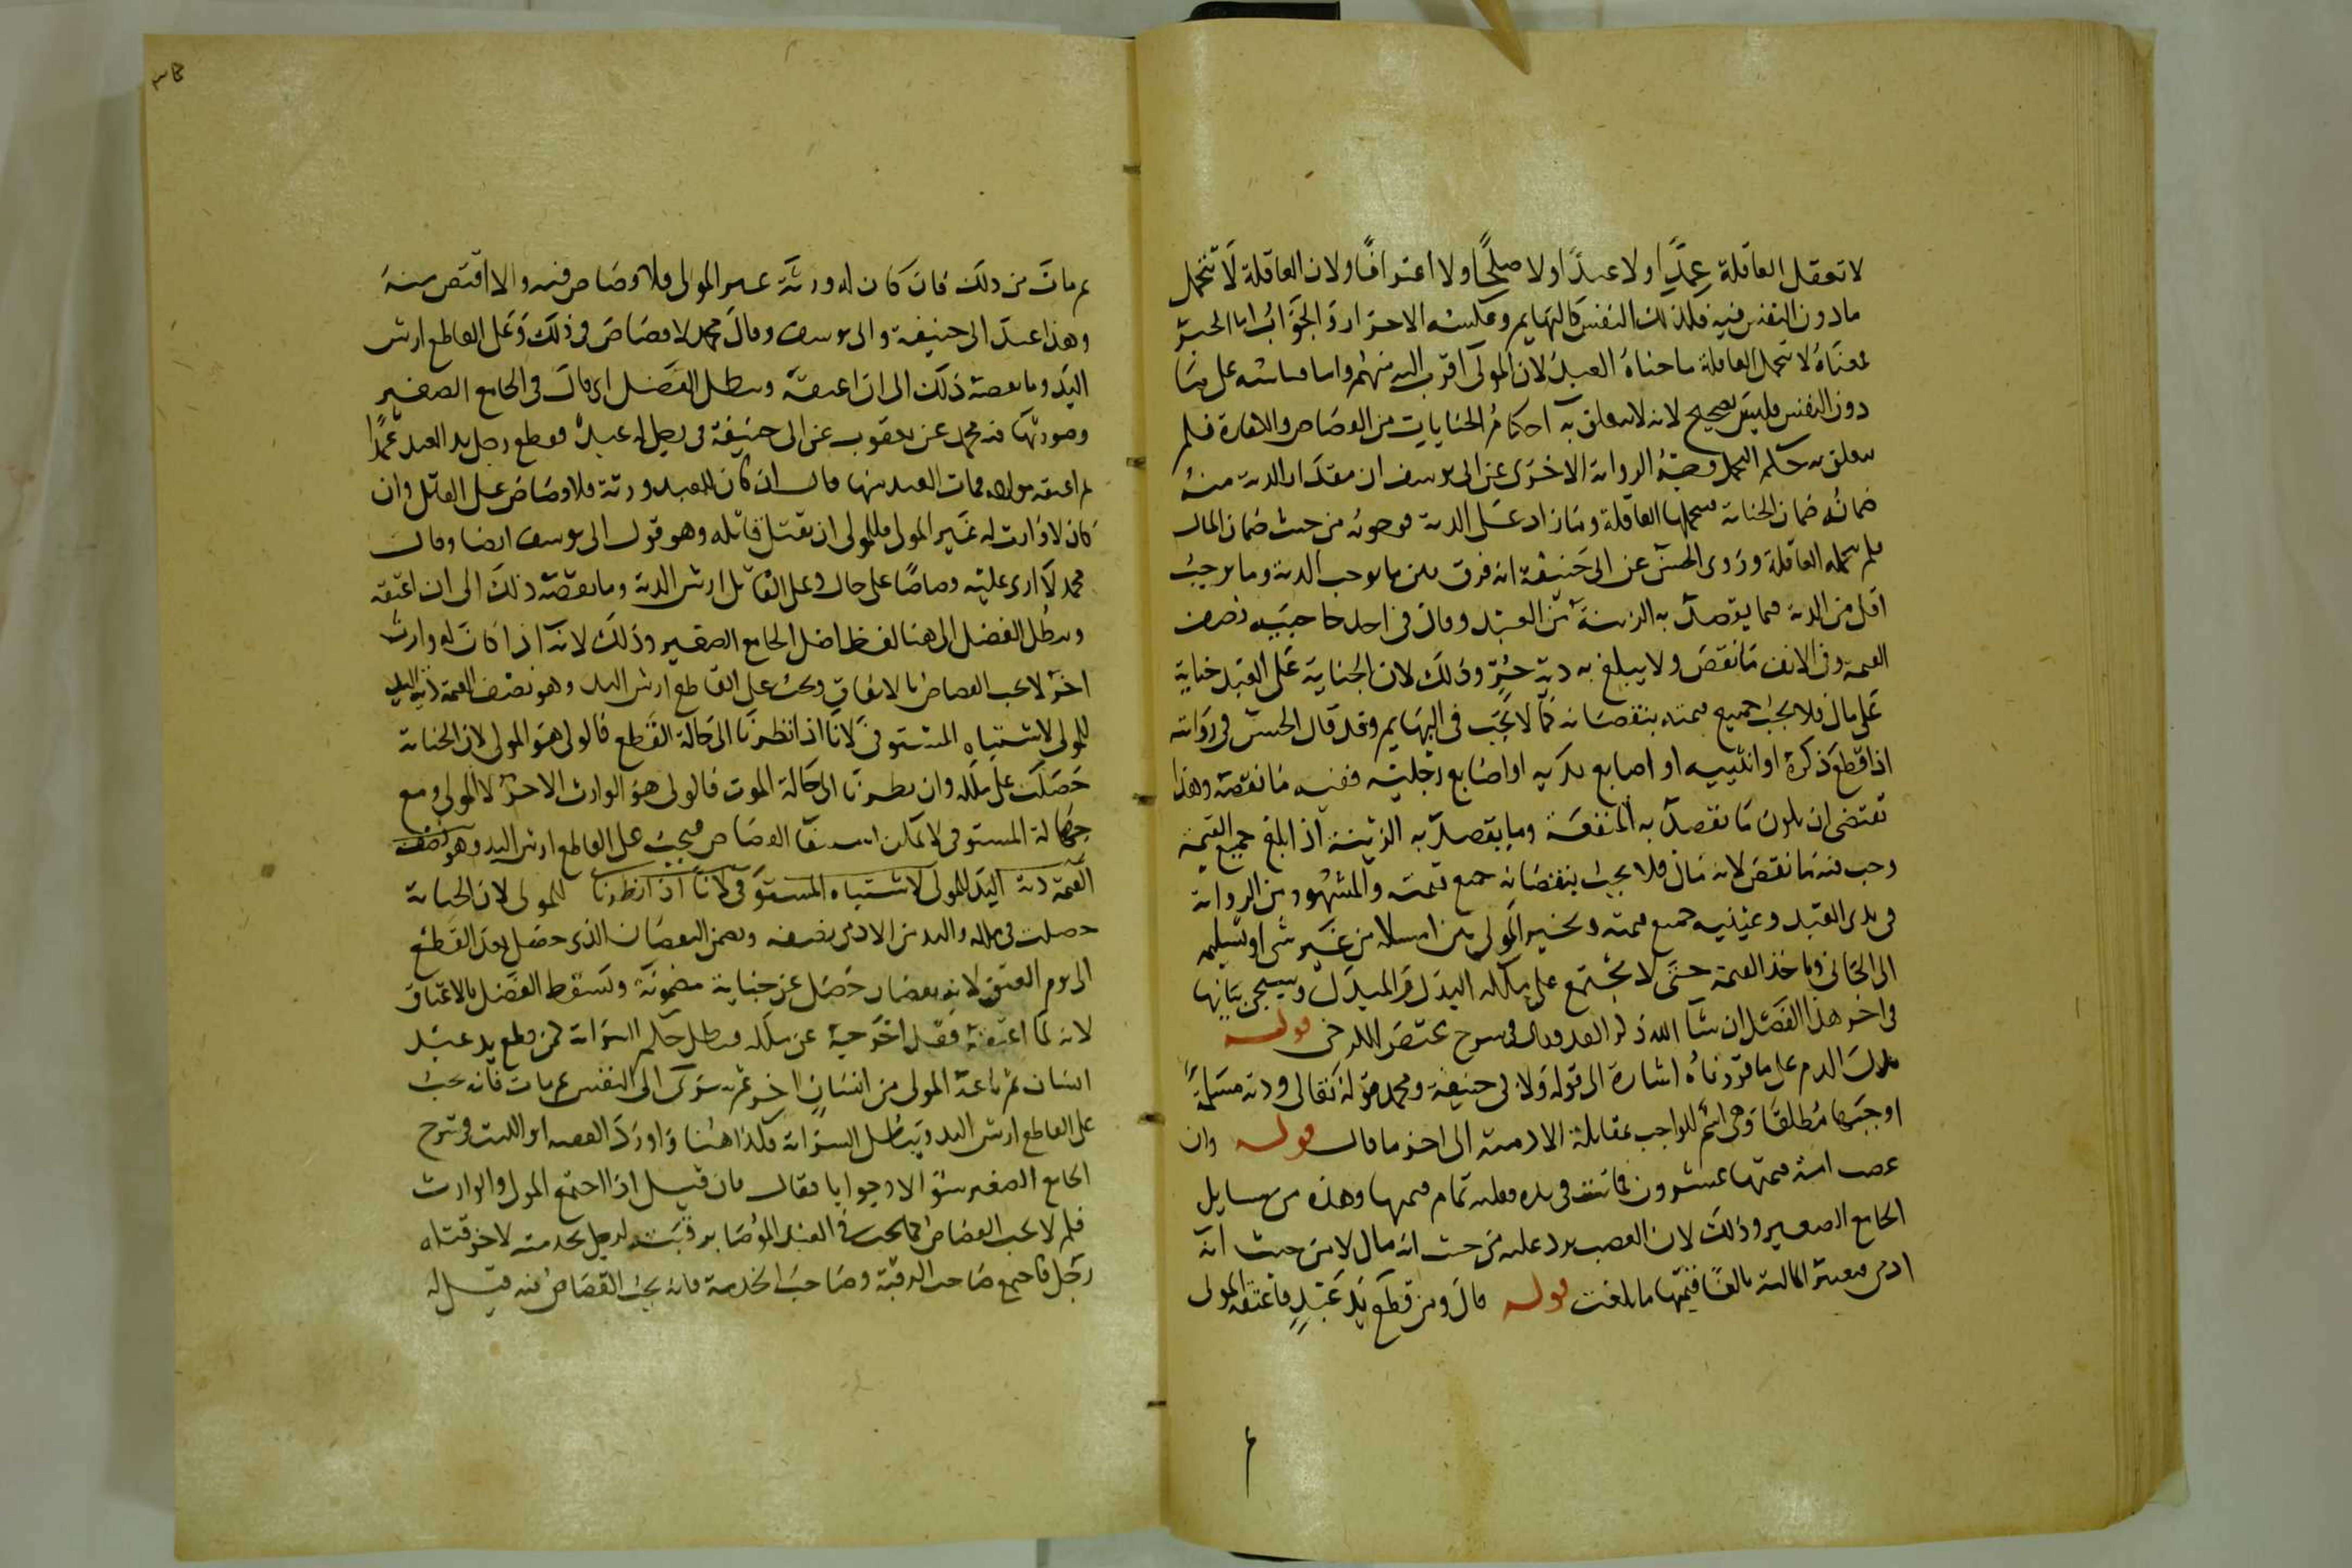 لا تعقل العاقلة عمدًا ولا عبدًا ولا صلحًا ولا اعترافًا ولان العاقلة لا تتحمل
ما دون النفس فيه فلذلك النفس كالبهايم وعكسه الاحرار والجواب اما الحديث
فمعناه لا تتحمل العاقلة ما جناه العبد لان المولى اقرب اليه منهم واما قياسه على ما
دون النفس فليس بصحيح لانه لا يتعلق به احكام الجنايات من القصاص والكفارة فلم
يتعلق به حكم التحمل وجه الرواية الاخرى عن ابي يوسف ان مقدار الدية منه
ضمانه ضمان الجناية فيتحملها العاقلة وما زاد على الدية فوجوبه من حيث ضمان المال
فلم تتحمله العاقلة وروى الحسن عن ابي حنيفة انه فرق بين ما يوجب الدية وما يوجب
اقل من الدية مما يقصد به الزينة من العبد وقال في احد حاجبيه نصف
القيمة وفي الانف ما نقص ولا يبلغ به دية حر وذلك لان الجناية على العبد جناية
على مال فلا يجب جميع قيمته بنقصانه كما لا يجب في البهايم وقد قال الحسن في روايته
اذا قطع ذكره او انثييه او اصابع يديه او اصابع رجليه ففيه ما نقصه وهذا
يقتضي ان يكون ما يقصد به المنفعة وما يقصد به الزينة اذا بلغ جميع القيمة
وجب فيه ما نقص لانه مال فلا يجب بنقصانه جميع قيمته والمشهور من الرواية
في يدي العبد وعينيه جميع قيمته ويخير المولى بين امساكه من غير شي او تسليمه
الى الجاني وياخذ القيمة حتى لا يجتمع على ملكه البدل والمبدل وسيجي بيانها
في اخر هذا الفصل ان شا الله ذكر القدوري في شرح مختصر الكرخي قوله
بدل الدم على ما قررناه اشارة الى قوله ولابي حنيفة ومحمد قوله تعالى ودية مسلمة
اوجبها مطلقا وهي اسم للواجب بمقابلة الادمية الى اخر ما قال قوله وان
غصب امة قيمتها عشرون فماتت في يده فعليه تمام قيمتها وهذه من مسايل
الجامع الصغير وذلك لان الغصب يرد عليه من حيث انه مال لا من حيث انه
ادمي فيعتبر المالية بالغًا قيمتها ما بلغت قوله قال ومن قطع يد عبد فاعتقه المولى
ثم مات من ذلك فان كان له ورثة غير المولى فلا قصاص فيه والا اقتص منه
وهذا عند ابي حنيفة وابي يوسف وقال محمد لا قصاص في ذلك وعلى القاطع ارش
اليد وما نقصه ذلك الى ان اعتقه ويبطل الفضل اي قال في الجامع الصغير
وصورتها فيه محمد عن يعقوب عن ابي حنيفة في رجل له عبد فقطع رجل يد العبد عمدًا
ثم اعتقه مولاه فمات العبد منها قال ان كان للعبد ورثة فلا قصاص على القاتل وان
كان لا وارث له غير المولى فللمولى ان يقتل قاتله وهو قول ابي يوسف ايضا وقال
محمد لا ارى عليه قصاصًا على حال وعلى القاتل ارش الدية وما نقصه ذلك الى ان اعتقه
ويبطل الفضل الى هنا لفظ اصل الجامع الصغير وذلك لانه اذا كان له وارث
اخر لا يجب القصاص بالاتفاق ويجب على القاطع ارش اليد وهو نصف القيمة دية اليد
للمولى لاشتباه المستوفي لانا اذا نظرنا الى حالة القطع فالولي هو المولى لان الجناية
حصلت على ملكه وان نظرنا الى حالة الموت فالولي هو الوارث الاخر لا المولى ومع
جهالة المستوفي لا يمكن استيفا القصاص فيجب على القاطع ارش اليد وهو نصف
القيمة دية اليد للمولى لاشتباه المستوفي لانا اذا نظرنا للمولى لان الجناية
حصلت في ملكه واليد من الادمي نصفه ويضمن النقصان الذي حصل بعد القطع
الى يوم العتق لانه نقصان حصل عن جناية مضمونة ويسقط الفضل بالاعتاق
لانه لما اعتقه فقد اخرجه عن ملكه فبطل حكم السراية كمن قطع يد عبد
انسان ثم باعه المولى من انسان اخر ثم سرى الى النفس ثم مات فانه يجب
على القاطع ارش اليد ويبطل السراية فكذا هنا واورد الفقيه ابو الليث في شرح
الجامع الصغير سؤالا وجوابا فقال فان قيل اذا اجتمع المولى والوارث
فلم لا يجب القصاص كما يجب في العبد الموصا برقبته لرجل بخدمته لاخر قتله
رجل فاجتمع صاحب الرقبة وصاحب الخدمة فانه يجب القصاص فيه قيل له